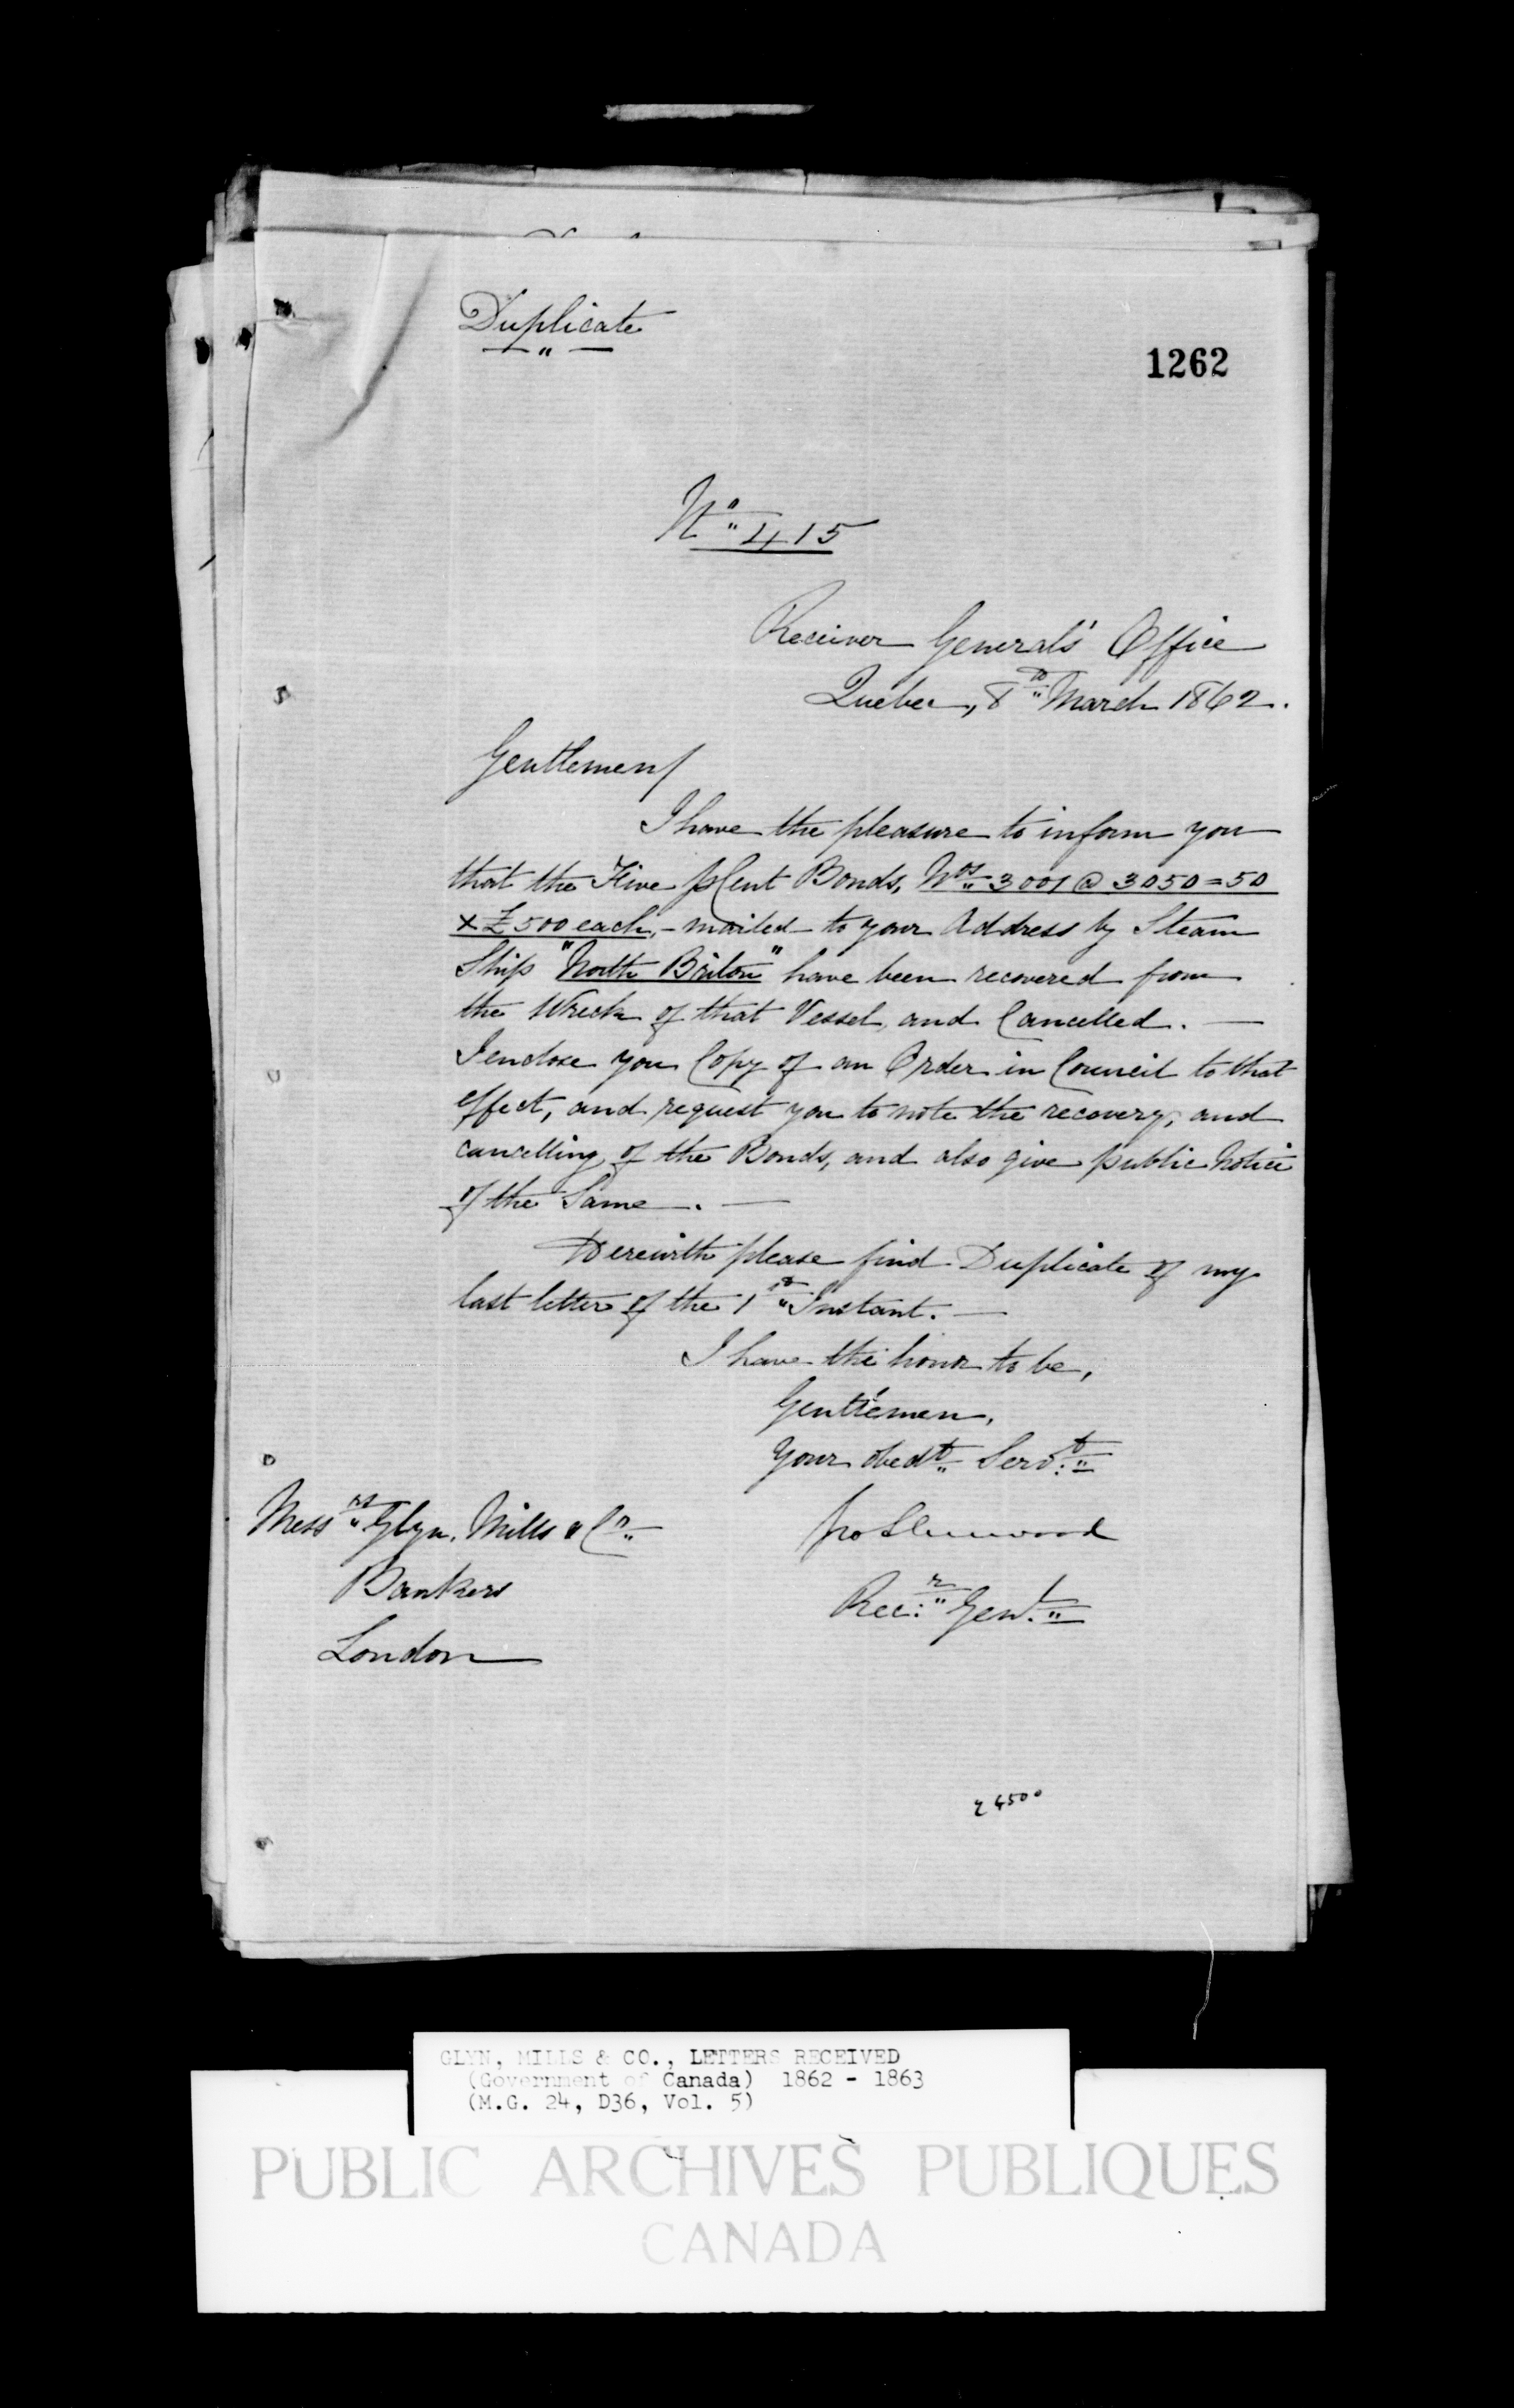 Duplicate
1262
No 415
Receiver General's Office
Quebec, 8th March 1862.
Gentlemen/
I have the pleasure to inform you
that the Five p Cent Bonds, Nos 3001 @ 3050 = 50
x £500 each, - mailed to your Address by Steam
Ship "North Briton" have been recovered from
the Wreck of that Vessel, and Cancelled. —
I enclose you Copy of an Order in Council to that
effect, and request you to note the recovery, and
cancelling of the Bonds, and also give public Notice
of the Same. —
Herewith please find Duplicate of my
last letter of the 1st Instant. —
I have the honor to be,
Gentlemen,
Your obedt Servt
Messrs Glyn, Mills & Co
Bankers
London
Jno Sherwood
Recr Genl
GLYN, MILLS & CO., LETTERS RECEIVED
(Government of Canada) 1862 - 1863
(M.G. 24, D36, Vol. 5)
PUBLIC ARCHIVES PUBLIQUES
CANADA